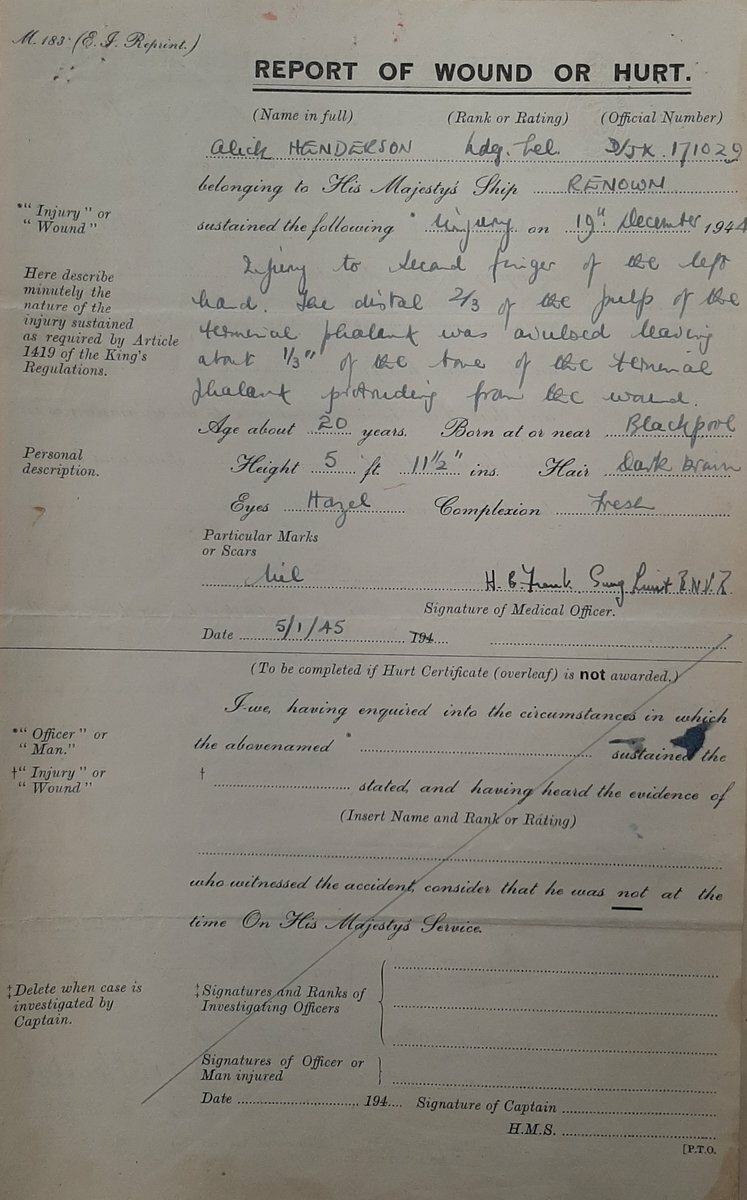 M. 183 (E. I. Reprint.)
REPORT OF WOUND OR HURT.
(Name in full) (Rank or Rating) (Official Number)
Alick HENDERSON Ldg. Tel. D/JX. 171029
belonging to His Majesty's Ship RENOWN
*"Injury" or "Wound"
sustained the following * Injury on 19th December 1944
Here describe minutely the nature of the injury sustained as required by Article 1419 of the King's Regulations.
Injury to second finger of the left
hand. The distal 2/3 of the pulp of the
terminal phalanx was avulsed leaving
about 1/3" of the bone of the terminal
phalanx protruding from the wound.
Age about 20 years. Born at or near Blackpool
Personal description.
Height 5 ft. 11½" ins. Hair Dark Brown
Eyes Hazel Complexion Fresh
Particular Marks
or Scars
Nil H. B. Frank. Surg Lieut R.N.V.R
Signature of Medical Officer.
Date 5/1/45 194
(To be completed if Hurt Certificate (overleaf) is not awarded.)
I-we, having enquired into the circumstances in which
*"Officer" or "Man."
the abovenamed * sustained the
†"Injury" or "Wound"
† stated, and having heard the evidence of
(Insert Name and Rank or Rating)
who witnessed the accident, consider that he was not at the
time On His Majesty's Service.
‡Delete when case is investigated by Captain.
‡Signatures and Ranks of
Investigating Officers
Signatures of Officer or
Man injured
Date 194 Signature of Captain
H.M.S.
[P.T.O.